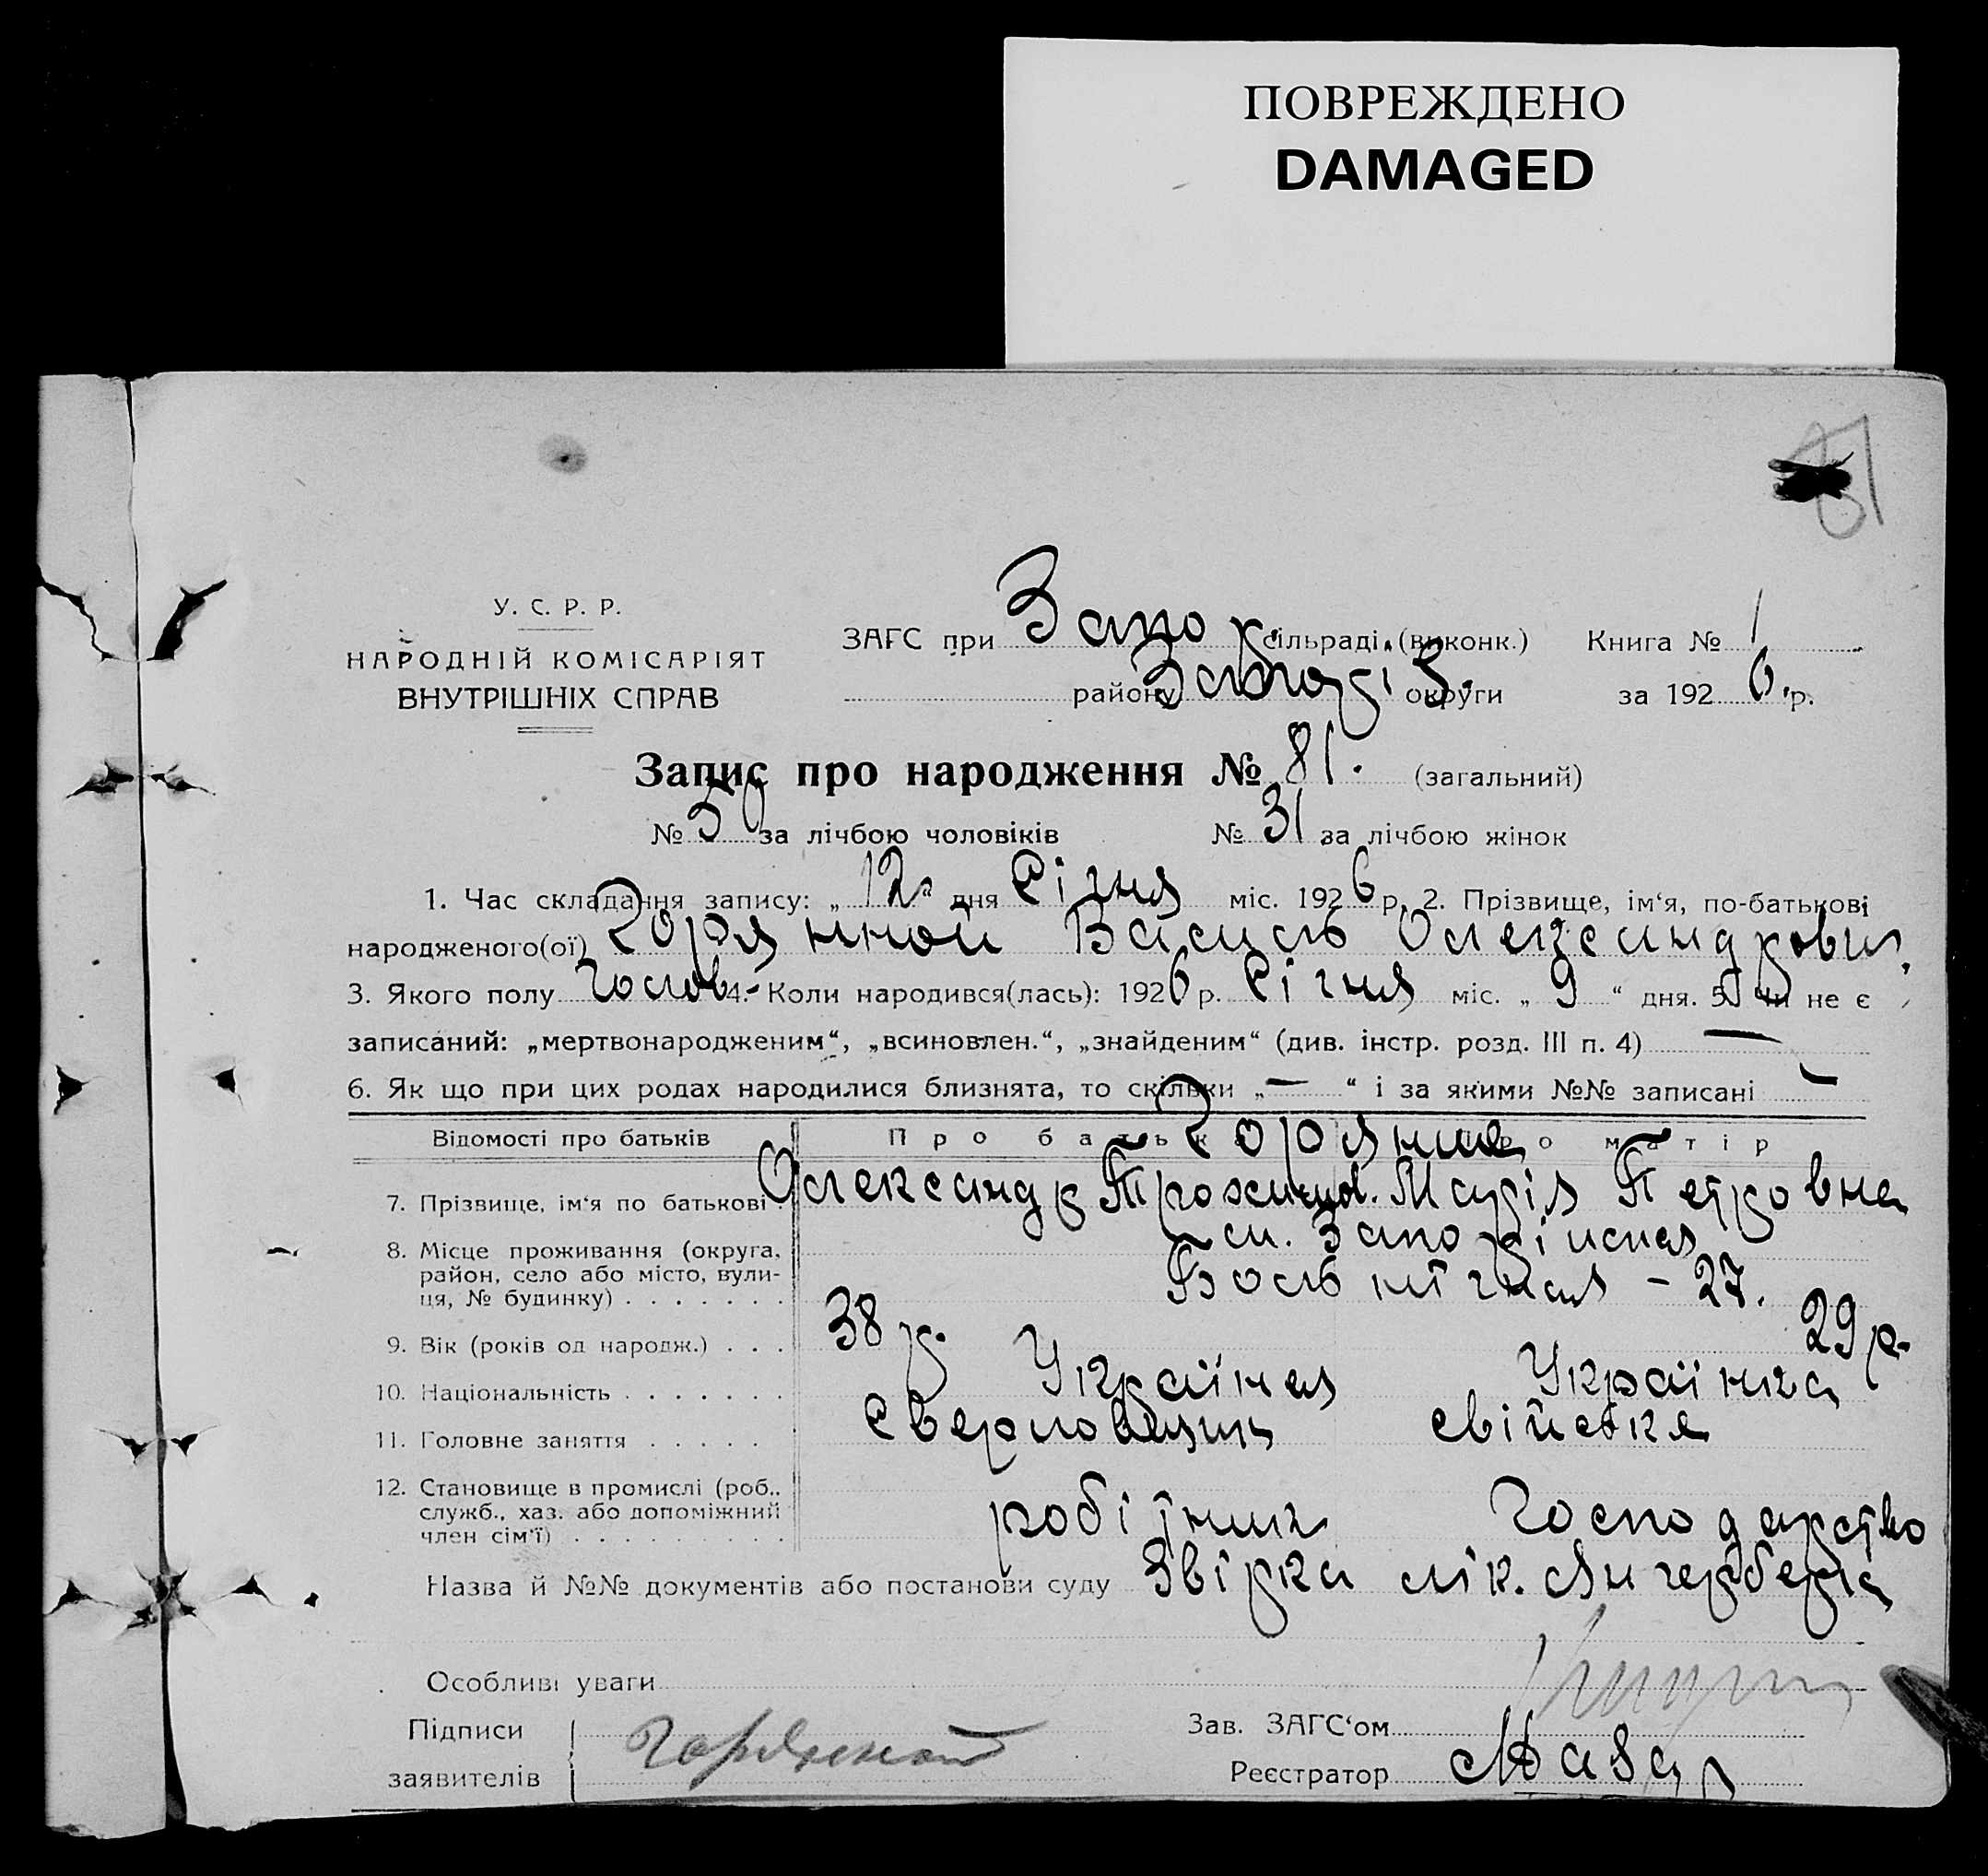 ПОВРЕЖДЕНО
DAMAGED
81
У. С. Р. Р.
НАРОДНІЙ КОМІСАРІЯТ
ВНУТРІШНІХ СПРАВ
ЗАГС при Запор. сільраді (виконк.) Книга № 1
району Запоріз. округи за 1926 р.
Запис про народження № 81. (загальний)
№ 50 за лічбою чоловіків № 31 за лічбою жінок
1. Час складання запису: „12“ дня Січня міс. 1926 р. 2. Прізвище, ім‘я, по-батькові
народженого(ої) Горянной Василь Олександрович
3. Якого полу Чолов.- 4. Коли народився(лась): 1926 р. Січня міс. „9“ дня. 5. Чи не є
записаний: „мертвонародженим“, „всиновлен.“, „знайденим“ (див. інстр. розд. III п. 4) —
6. Як що при цих родах народилися близнята, то скільки „—“ і за якими №№ записані —
Відомості про батьків Про батька Про матір
Горянние
7. Прізвище, ім‘я по батькові . Олександр Трохимов. Марія Петровна
8. Місце проживання (округа, м. Запоріжжя
район, село або місто, вули-
ця, № будинку) . . . . . . . – 27.
9. Вік (років од народж.) . . . 38 р. 29 р.
10. Національність . . . . . . . Українец Українка
11. Головне заняття . . . . . свійське
12. Становище в промислі (роб.,
служб., хаз. або допоміжний робітник Господарство
член сім‘ї) . . . . . . . . .
Назва й №№ документів або постанови суду лік.
Особливі уваги
Підписи Горянной Зав. ЗАГС‘ом
заявителів Реєстратор